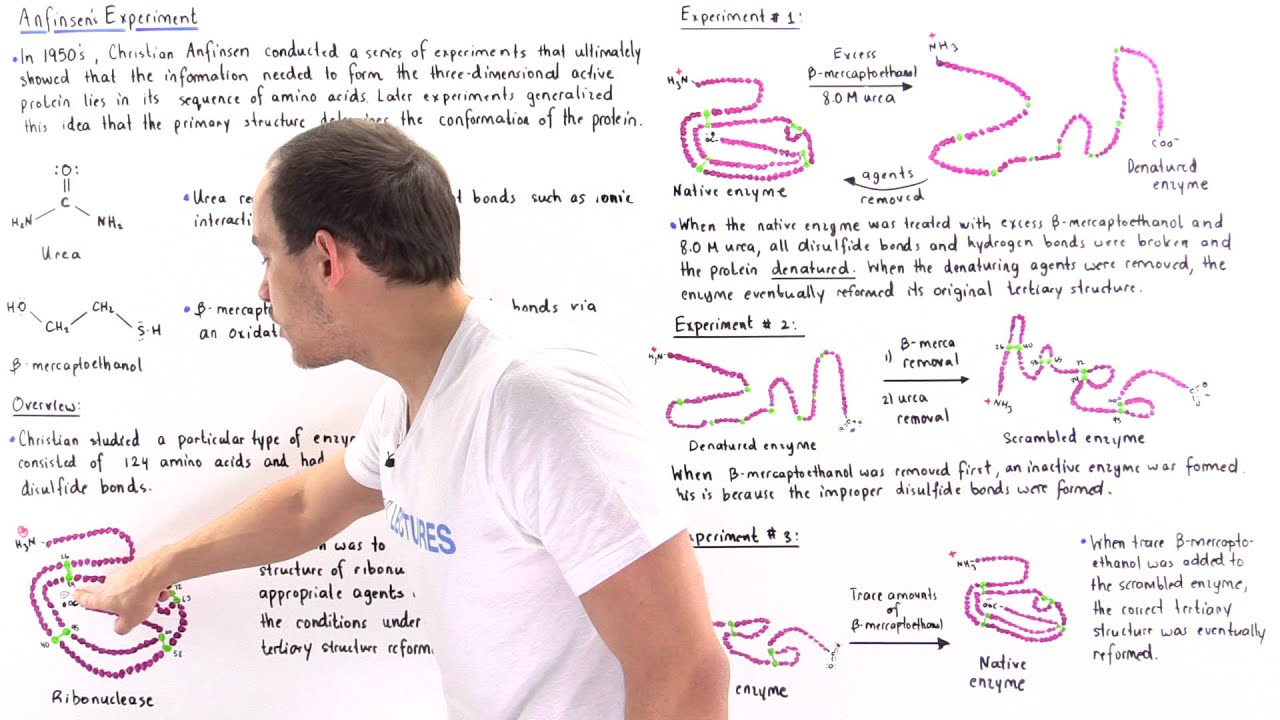 Anfinsen's Experiment
•In 1950's, Christian Anfinsen conducted a series of experiments that ultimately
showed that the information needed to form the three-dimensional active
protein lies in its sequence of amino acids. Later experiments generalized
this idea that the primary structure the conformation of the protein.
:O:
C
H₂N NH₂
Urea
•Urea bonds such as ionic
HO CH₂ CH₂ S-H
β-mercaptoethanol
• bonds via
an
Overview:
•Christian studied a particular type of
consisted of 124 amino acids and had
disulfide bonds.
H₃N
26
72
65
95
40
58
Ribonuclease
was to
structure of
appropriate agents
the conditions under
tertiary structure
LECTURES
Experiment # 1:
+
H₃N
Native enzyme
Excess
β-mercaptoethanol
8.0 M urea
agents
removed
+
NH₃
COO⁻
Denatured
enzyme
•When the native enzyme was treated with excess β-mercaptoethanol and
8.0 M urea, all disulfide bonds and hydrogen bonds were broken and
the protein denatured. When the denaturing agents were removed, the
enzyme eventually reformed its original tertiary structure.
Experiment # 2:
+
H₃N
Denatured enzyme
1) β-merca
removal
2) urea
removal
26 40
65
72
95
+
NH₃
Scrambled enzyme
When β-mercaptoethanol was removed first, an inactive enzyme was formed.
is because the improper disulfide bonds were formed.
# 3:
enzyme
Trace amounts
of
β-mercaptoethanol
+
NH₃
Native
enzyme
•When trace β-mercapto-
ethanol was added to
the scrambled enzyme,
the correct tertiary
structure was eventually
reformed.